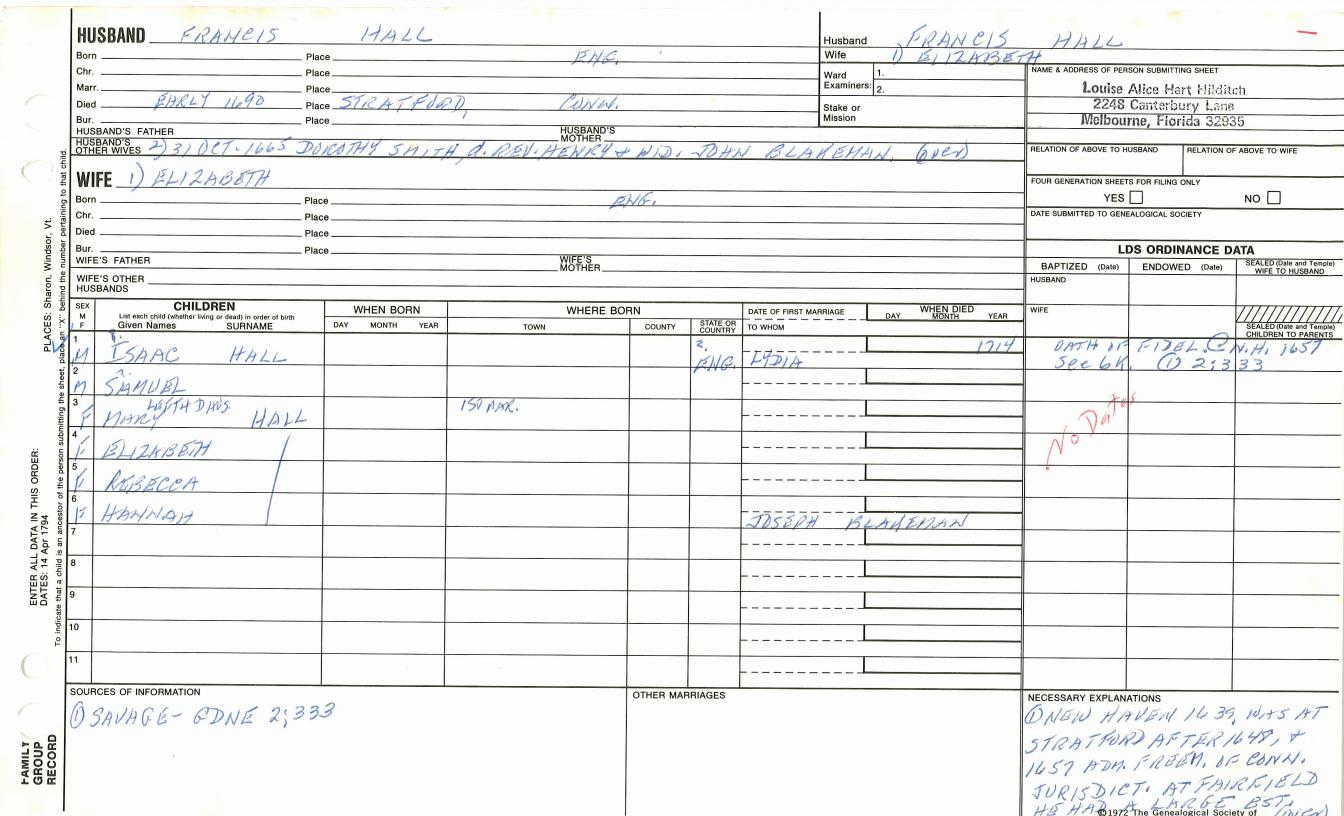 HUSBAND FRANCIS HALL
Born Place ENG.
Chr. Place
Marr. Place
Died EARLY 1690 Place STRATFORD, CONN.
Bur. Place
HUSBAND'S FATHER HUSBAND'S MOTHER
HUSBAND'S OTHER WIVES 2) 31 OCT. 1665 DOROTHY SMITH, d. REV. HENRY & WID. JOHN BLAKEMAN. (OVER)
WIFE 1) ELIZABETH
Born Place ENG.
Chr. Place
Died Place
Bur. Place
WIFE'S FATHER WIFE'S MOTHER
WIFE'S OTHER HUSBANDS
Husband FRANCIS HALL
Wife 1) ELIZABETH
Ward Examiners: 1.
2.
Stake or Mission
NAME & ADDRESS OF PERSON SUBMITTING SHEET
Louise Alice Hart Hilditch
2248 Canterbury Lane
Melbourne, Florida 32935
RELATION OF ABOVE TO HUSBAND RELATION OF ABOVE TO WIFE
FOUR GENERATION SHEETS FOR FILING ONLY
YES NO
DATE SUBMITTED TO GENEALOGICAL SOCIETY
LDS ORDINANCE DATA
BAPTIZED (Date) ENDOWED (Date) SEALED (Date and Temple) WIFE TO HUSBAND
HUSBAND
WIFE
SEALED (Date and Temple) CHILDREN TO PARENTS
SEX M F
CHILDREN
List each child (whether living or dead) in order of birth
Given Names SURNAME
WHEN BORN
DAY MONTH YEAR
WHERE BORN
TOWN COUNTY STATE OR COUNTRY
DATE OF FIRST MARRIAGE
TO WHOM
WHEN DIED
DAY MONTH YEAR
1 M ISAAC HALL ?. ENG. LYDIA 1714 OATH OF FIDEL. @ N.H. 1657
See 6K. ① 2:333
2 M SAMUEL
3 F MARY HALL
4 F ELIZABETH
5 F REBECCA
6 F HANNAH JOSEPH BLAKEMAN
7
8
9
10
11
No Dates
SOURCES OF INFORMATION
① SAVAGE - GDNE 2:333
OTHER MARRIAGES
NECESSARY EXPLANATIONS
① NEW HAVEN 1639, WAS AT
STRATFORD AFTER 1648, &
1657 ADM. FREEM. OF CONN.
JURISDICT. AT FAIRFIELD
HE HAD A LARGE EST.
(OVER)
©1972 The Genealogical Society of
ENTER ALL DATA IN THIS ORDER:
DATES: 14 Apr 1794
PLACES: Sharon, Windsor, Vt.
To indicate that a child is an ancestor of the person submitting the sheet, place an "X" behind the number pertaining to that child.
FAMILY
GROUP
RECORD